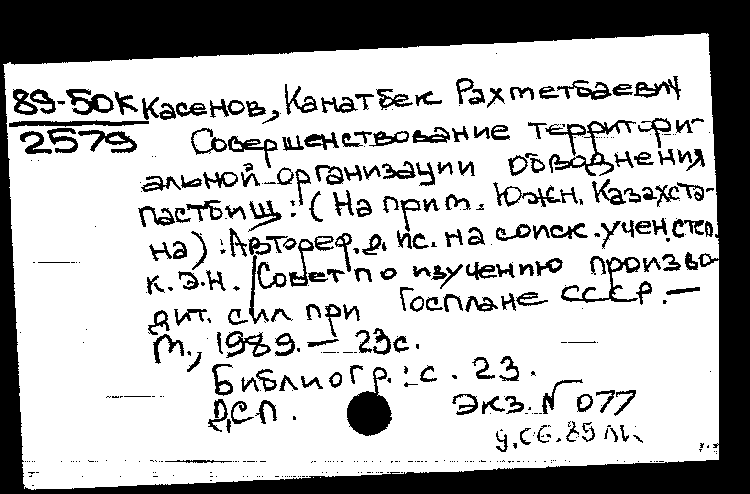 89-50К Касенов, Канатбек Рахметбаевич
2579 Совершенствование территори-
альной организации обводнения
пастбищ: (На прим. Южн. Казахста-
на) : Автореф. дис. на соиск. учен. степ.
к.э.н. / Совет по изучению произво-
дит. сил при Госплане СССР. —
М., 1989. — 23с.
Библиогр.: с. 23.
ДСП. Экз. № 077